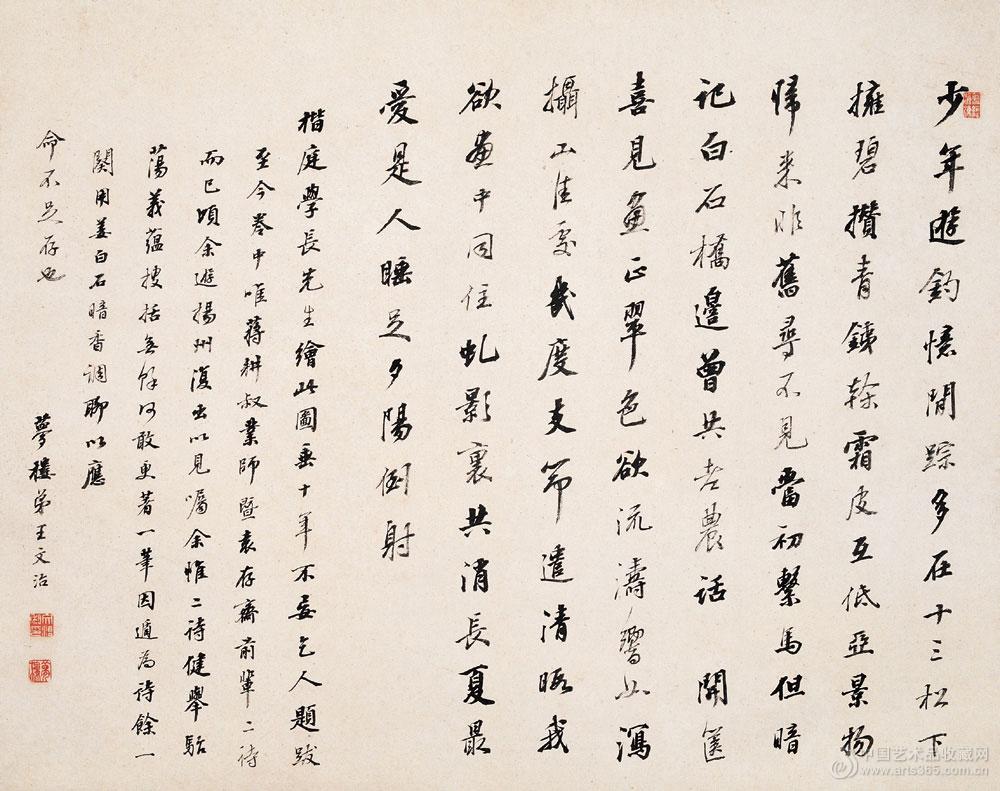 少年遊釣憶閒踪多在十三松下
擁碧攢青鐵幹霜皮互低亞景物
歸来非舊尋不見當初繫馬但暗
記白石橋邊曾共老農話 開篋
喜見畫正翠色欲流濤響如瀉
攝山佳處幾度支笻遣清暇我
欲畫中同住虬影裏共消長夏最
愛是人睡足夕陽倒射
楷庭學長先生繪此圖垂十年不妄乞人題跋
至今卷中唯蔣耕叔業師暨袁存齋前輩二詩
而已頃余遊揚州復出以見囑余惟二詩健舉駘
蕩義蘊搜括無餘何敢更著一筆因遁為詩餘一
闋用姜白石暗香調聊以應
命不足存也
夢樓弟王文治
中国艺术品收藏网
www.arts365.com.cn